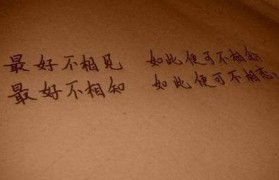 最好不相见 如此便可不相恋
最好不相知 如此便可不相思